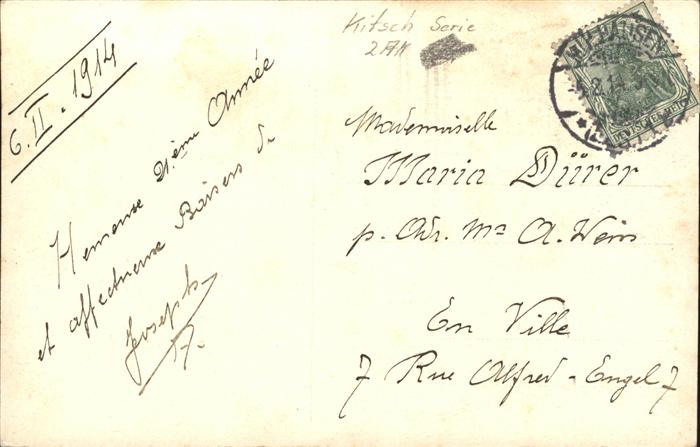 6.II.1914
Heureuse 21ème Année
et affectueuse Baisers de
Joseph
A.
Kitsch Serie
Mademoiselle
Maria Dürer
p. Adr. Me A. Weiss
En Ville
7 Rue Alfred-Engel 7
MÜLHAUSEN
DEUTSCHES REICH